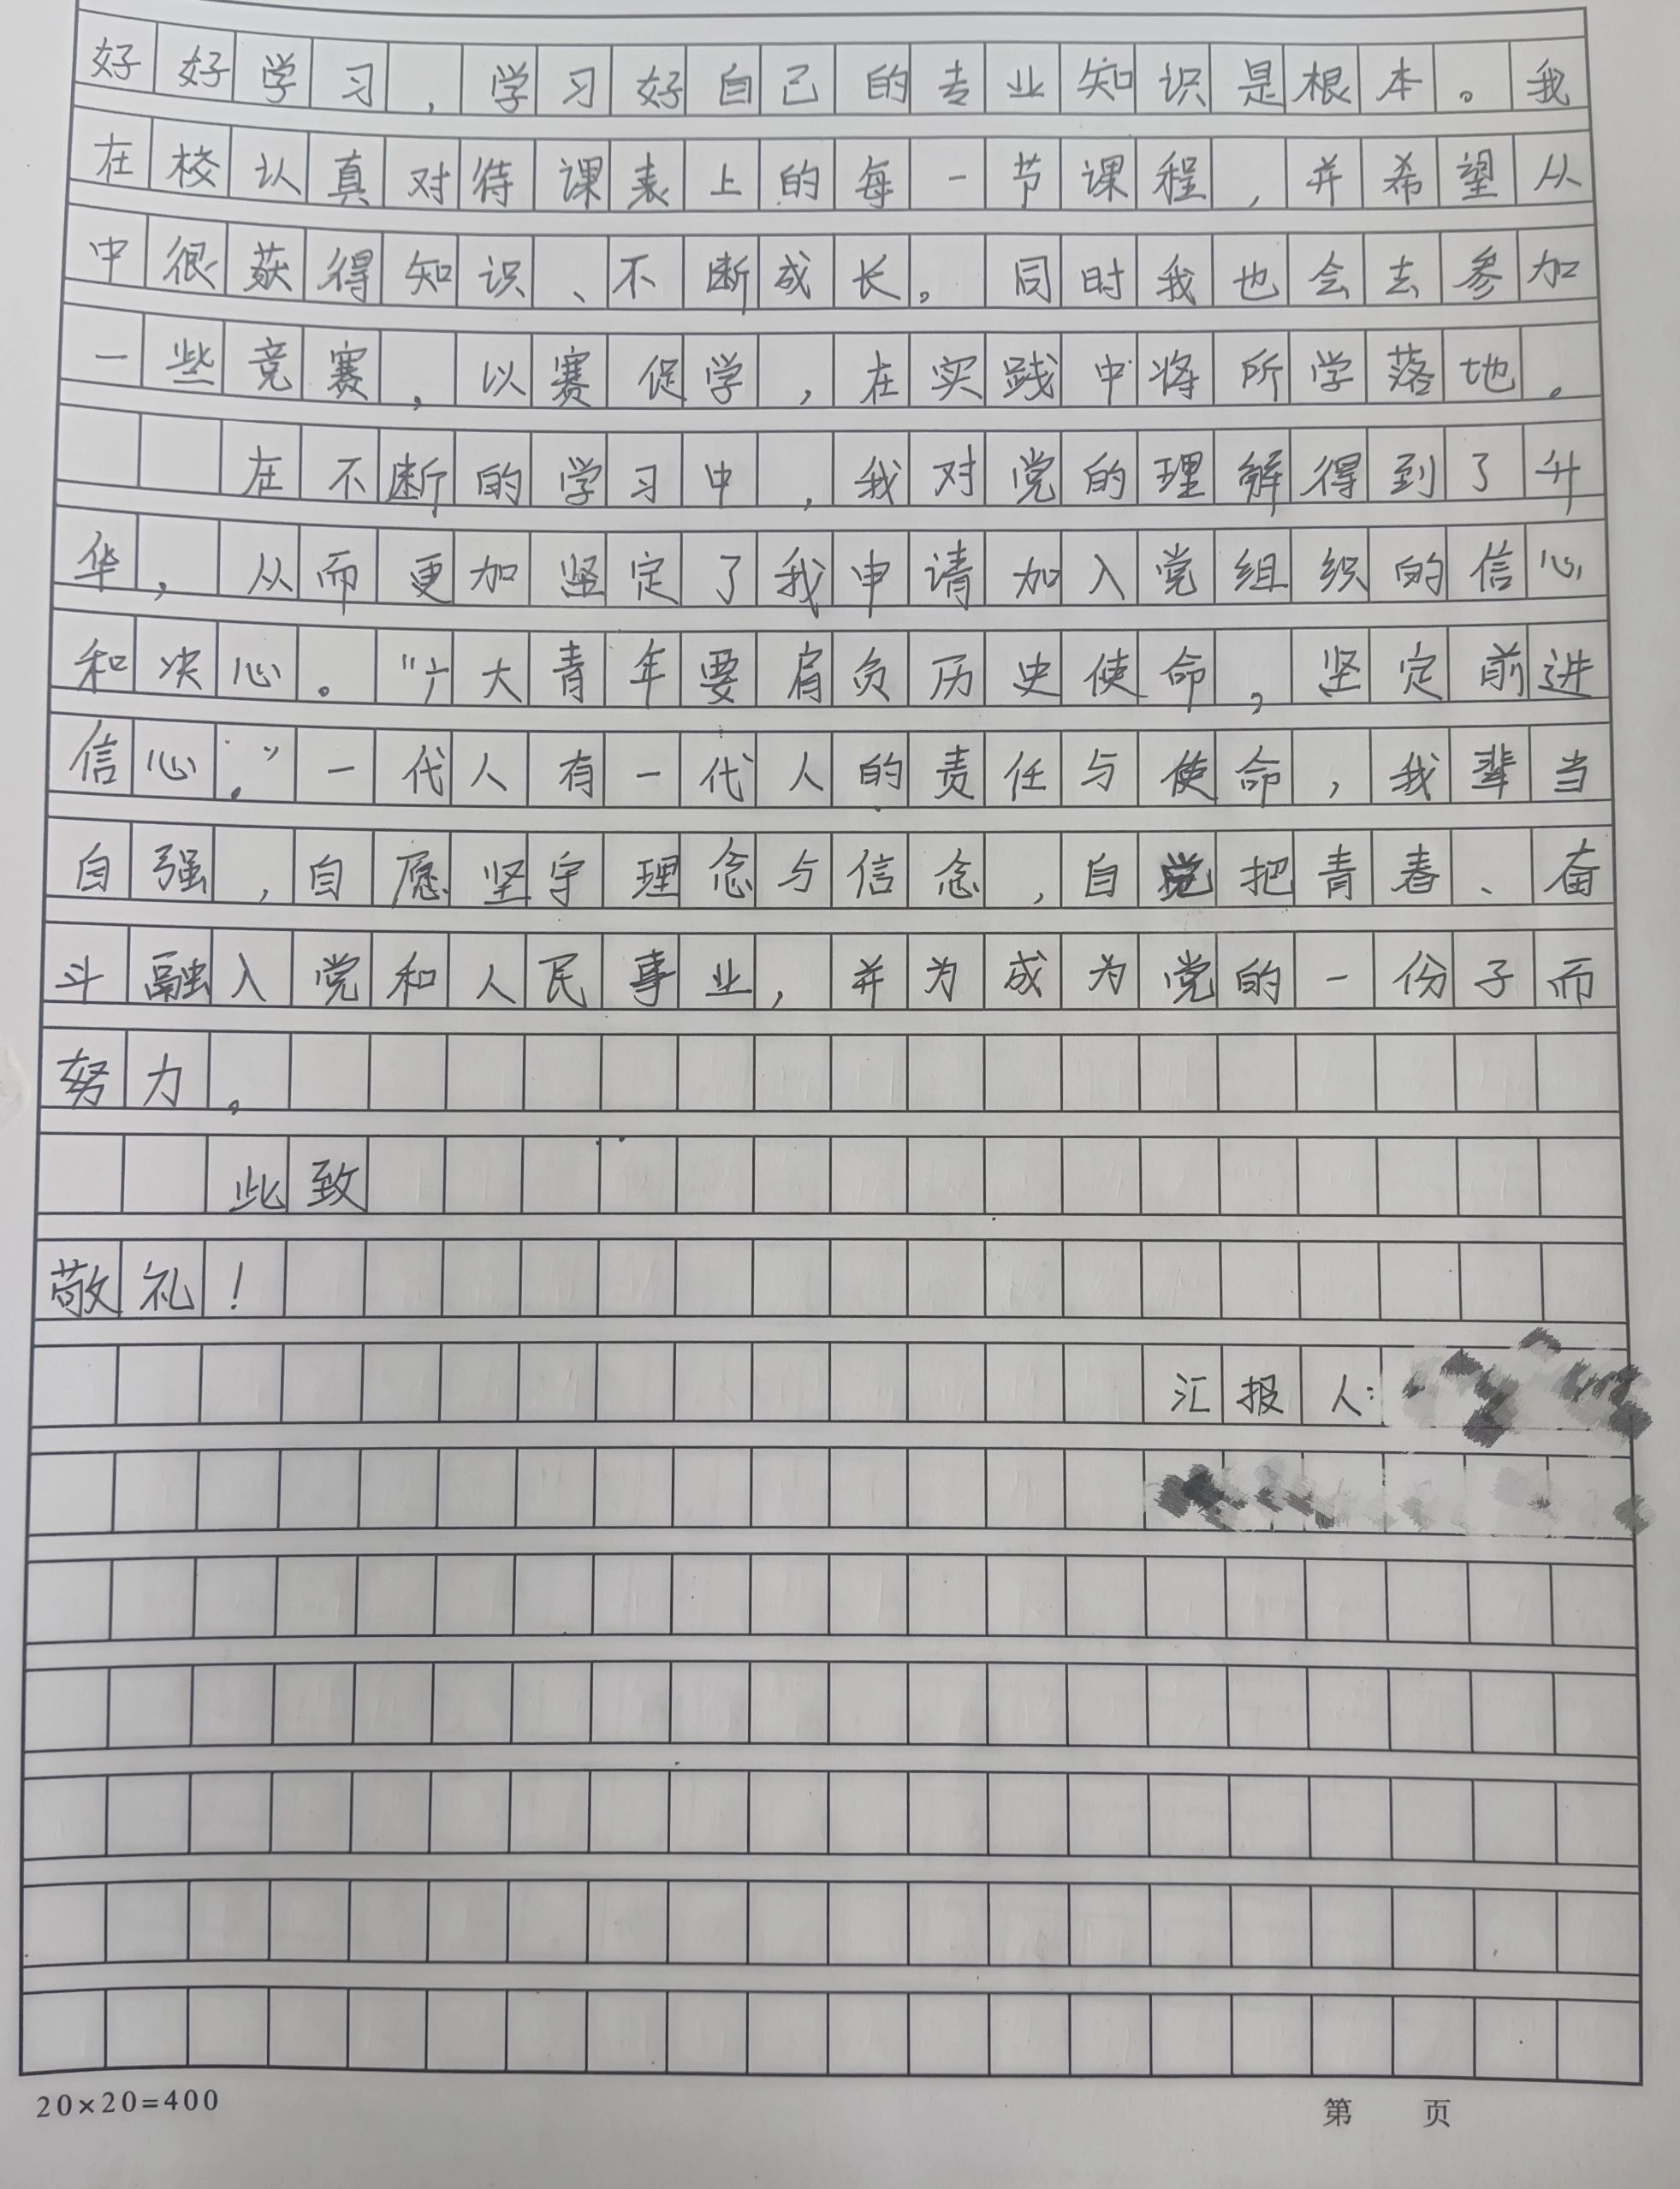 好好学习，学习好自己的专业知识是根本。我
在校认真对待课表上的每一节课程，并希望从
中很获得知识、不断成长。同时我也会去参加
一些竞赛，以赛促学，在实践中将所学落地。
在不断的学习中，我对党的理解得到了升
华，从而更加坚定了我申请加入党组织的信心
和决心。“广大青年要肩负历史使命，坚定前进
信心。”一代人有一代人的责任与使命，我辈当
自强，自愿坚守理念与信念，自觉把青春、奋
斗融入党和人民事业，并为成为党的一份子而
努力。
此致
敬礼！
汇报人：
20×20=400
第 页